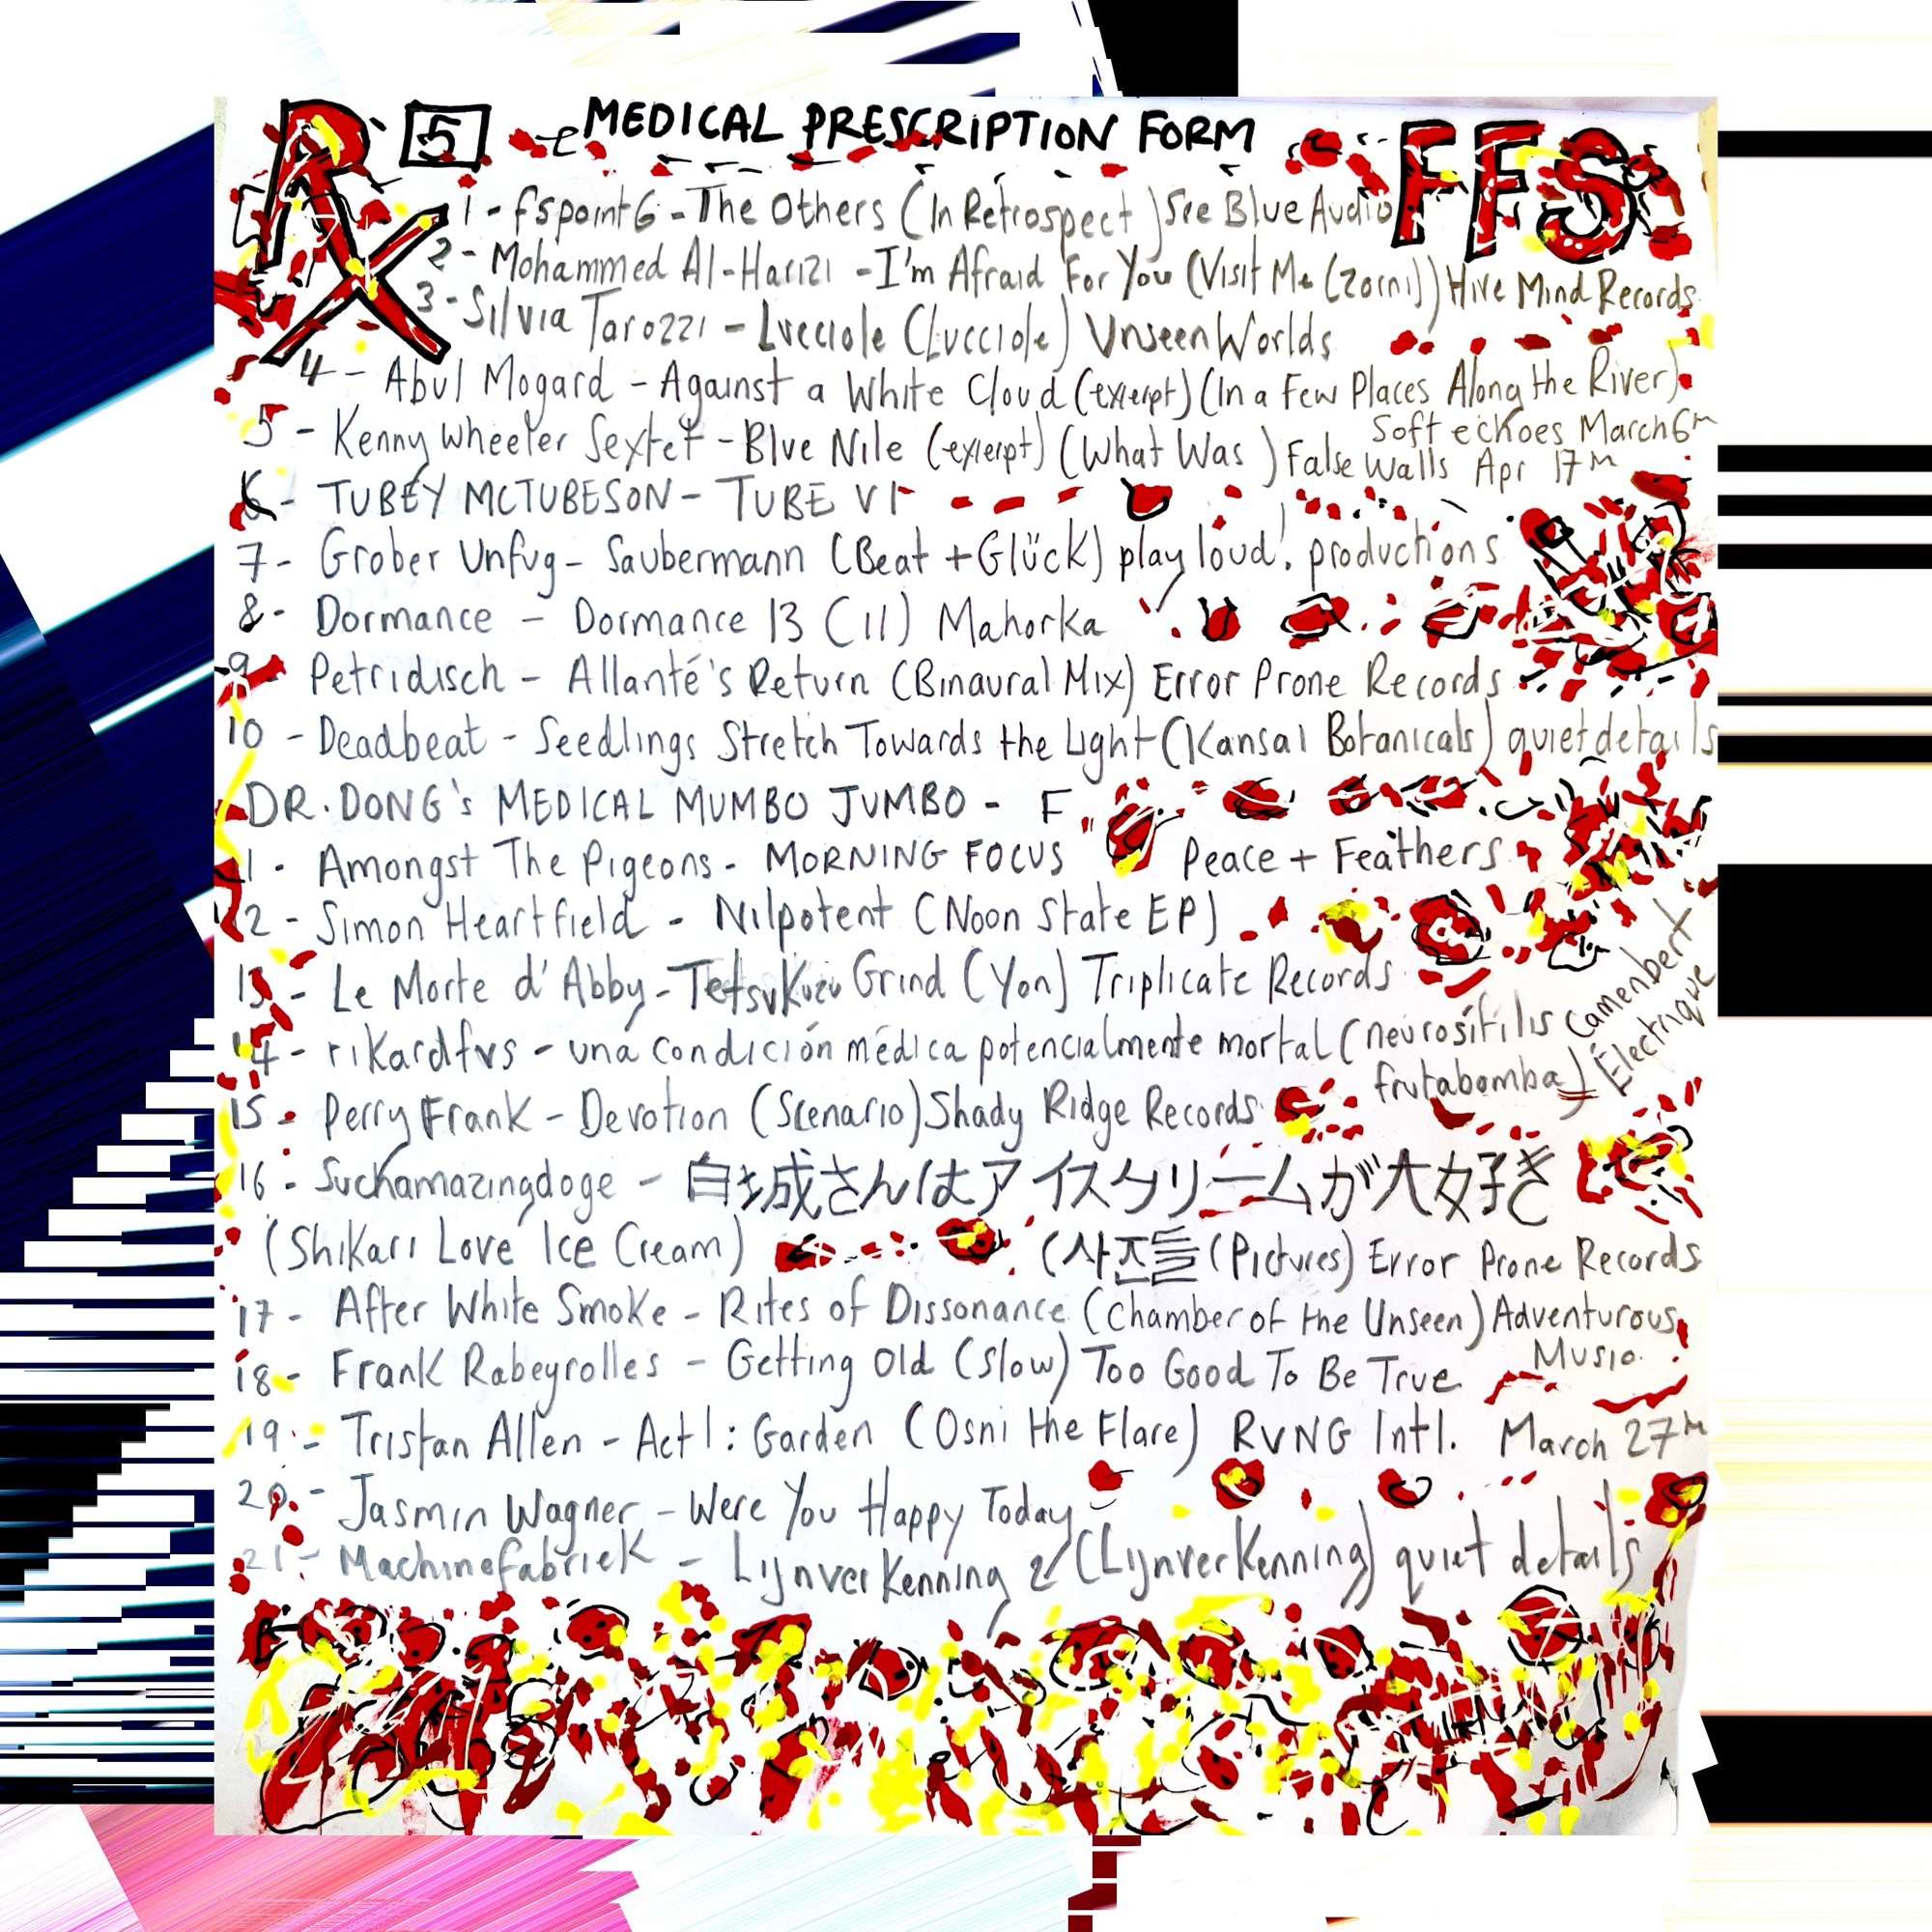 Rx 5 MEDICAL PRESCRIPTION FORM FFS
1 - fspoint6 - The Others (In Retrospect) See Blue Audio
2 - Mohammed Al-Harizi - I'm Afraid For You (Visit Me (Zorni)) Hive Mind Records
3 - Silvia Tarozzi - Lucciole (Lucciole) Unseen Worlds
4 - Abul Mogard - Against a White Cloud (exerpt) (In a Few Places Along the River)
Soft echoes March 6th
5 - Kenny Wheeler Sextet - Blue Nile (exerpt) (What Was) False Walls Apr 17th
6 - TUBEY MCTUBESON - TUBE VI
7 - Grober Unfug - Saubermann (Beat + Glück) play loud! productions
8 - Dormance - Dormance 13 (II) Mahorka
9 Petridisch - Allanté's Return (Binaural Mix) Error Prone Records
10 - Deadbeat - Seedlings Stretch Towards the Light (Kansai Botanicals) quiet details
DR. DONG's MEDICAL MUMBO JUMBO - F
11 - Amongst The Pigeons - MORNING FOCUS Peace + Feathers
12 - Simon Heartfield - Nilpotent (Noon State EP)
13 - Le Morte d'Abby - Tetsukuzu Grind (Yon) Triplicate Records
14 - rikardfvs - una condición médica potencialmente mortal (neurosífilis
frutabomba) Camenbert Électrique
15 - Perry Frank - Devotion (Scenario) Shady Ridge Records
16 - Suchamazingdoge - 城さんはアイスクリームが大好き
(Shikari Love Ice Cream) (사진들 (Pictures) Error Prone Records
17 - After White Smoke - Rites of Dissonance (Chamber of the Unseen) Adventurous
Music
18 - Frank Rabeyrolles - Getting Old (Slow) Too Good To Be True
19 - Tristan Allen - Act 1: Garden (Osni the Flare) RVNG Intl. March 27th
20 - Jasmin Wagner - Were You Happy Today
21 - Machinefabriek - Lijnverkenning 2 (Lijnverkenning) quiet details